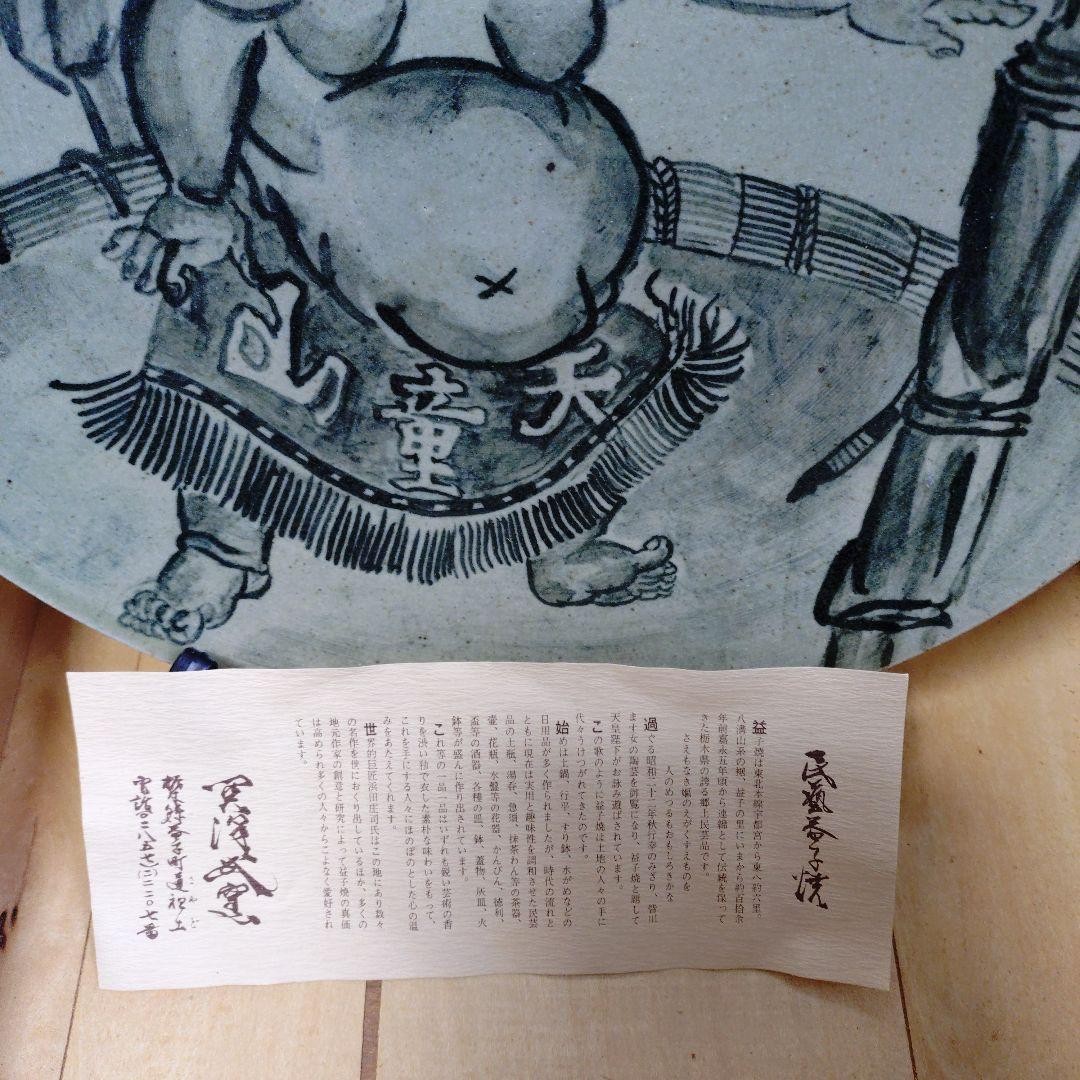 天童山
民藝益子焼
益子焼は東北本線宇都宮から東へ約六里。
八溝山系の裾、益子の里にいまから約百拾余
年前嘉永五年頃から連綿として伝統を保って
きた栃木県の誇る郷土民芸品です。
さえもなき媼のえがくすえものを
人のめつるもおもしろきかな
過ぐる昭和二十二年秋行幸のみぎり、皆川
ます女の陶芸を御覧になり、益子焼と題して
天皇陛下がお詠み遊ばされています。
この歌のように益子焼は土地の人々の手に
代々うけつがれてきたのです。
始めは土鍋、行平、すり鉢、水がめなどの
日用品が多く作られましたが、時代の流れと
ともに現在は実用と趣味性を調和させた民芸
品の土瓶、湯呑、急須、抹茶わん等の茶器、
壷、花瓶、水盤等の花器、かんびん、徳利、
盃等の酒器、各種の皿、鉢、蓋物、灰皿、火
鉢等が盛んに作り出されています。
これ等の一品一品はいずれも鋭い芸術の香
りを渋い釉で衣した素朴な味わいをもって、
これを手にする人々にほのぼのとした心の温
みをあたえてくれます。
世界的巨匠浜田庄司氏はこの地にあり数々
の名作を世におくり出しているほか、多くの
地元作家の創意と研究によって益子焼の真価
は高められ多くの人々からこよなく愛好され
ています。
栃木縣益子町道祖土
さやど
電話〇二八五七(二)二二〇七番